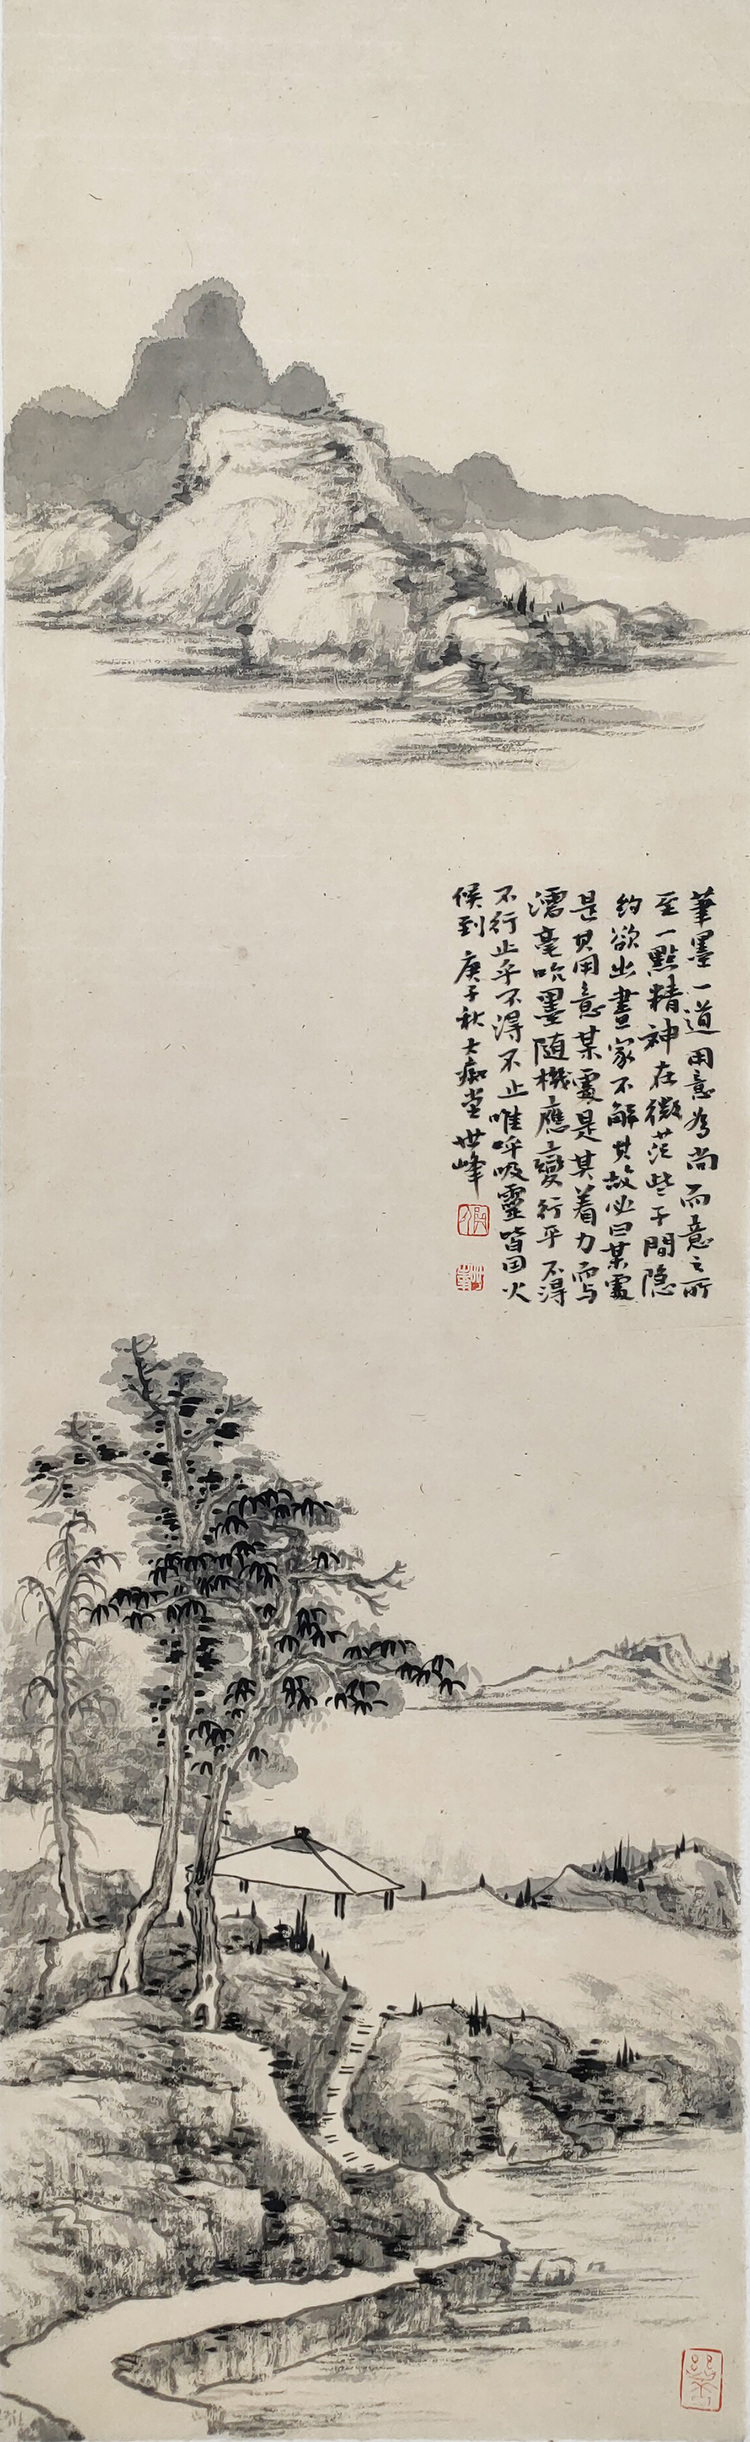 筆墨一道用意為尚而意之所
至一點精神在微茫些子間隐
約欲出畫家不解其故必曰某處
是其用意某處是其着力而与
濡毫吮墨随機應變行乎不得
不行止乎不得不止唯呼吸靈皆由火
候到 庚子秋大痴堂世峰